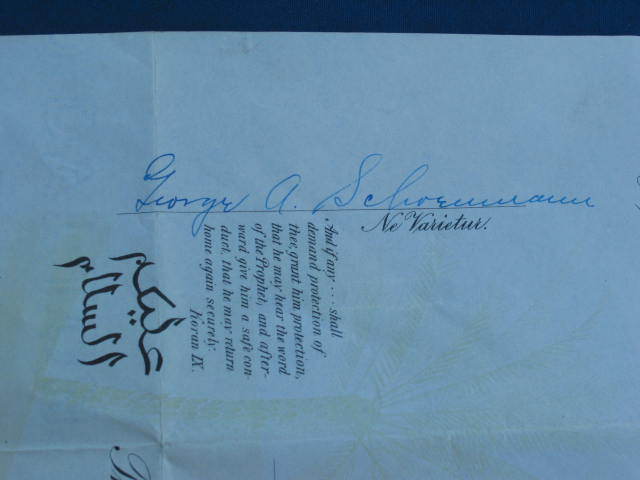 George A. Schoenmann
Ne Varietur.
And if any .... shall
demand protection of
thee, grant him protection,
that he may hear the word
of the Prophet, and after-
ward give him a safe con-
duct, that he may return
home again securely.
Koran IX.
السلام
عليكم